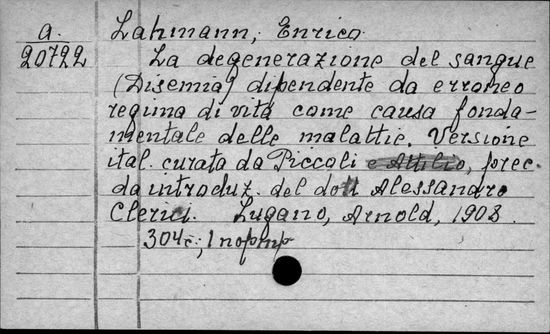 a. Lahmann, Enrico
20722 La degenerazione del sangue
(Disemia) dipendente da erroneo
regima di vita come causa fonda-
mentale delle malattie. Versione
ital. curata da Piccoli e Attilio, prec.
da introduz. del dott Alessandro
Clerici. Lugano, Arnold, 1908.
304 c;